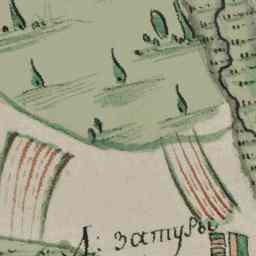 Д: затуры